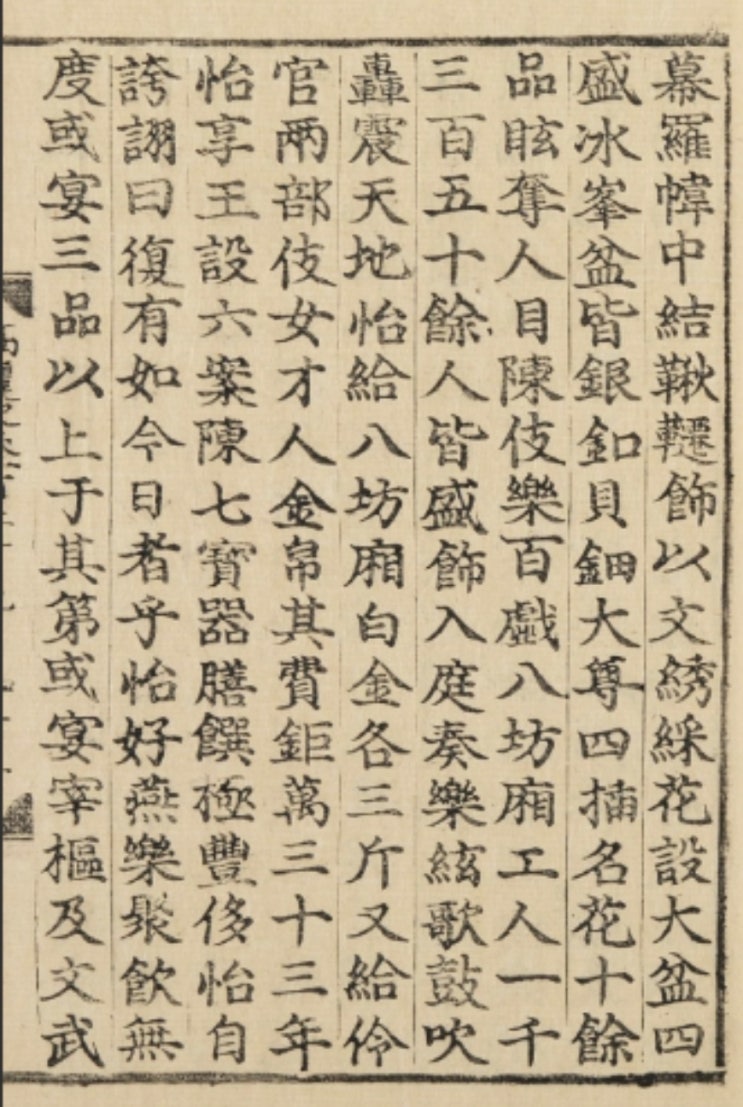 幕羅幃中結鞦韆飾以文綉綵花設大盆四
盛冰峯盆皆銀釦貝鈿大尊四揷名花十餘
品眩奪人目陳伎樂百戱八坊廂工人一千
三百五十餘人皆盛飾入庭奏樂絃歌鼓吹
轟震天地怡給八坊廂白金各三斤又給伶
官兩部伎女才人金帛其費鉅萬三十三年
怡享王設六案陳七寶器膳饌極豐侈怡自
誇詡曰復有如今日者乎怡好燕樂聚飮無
度或宴三品以上于其第或宴宰樞及文武